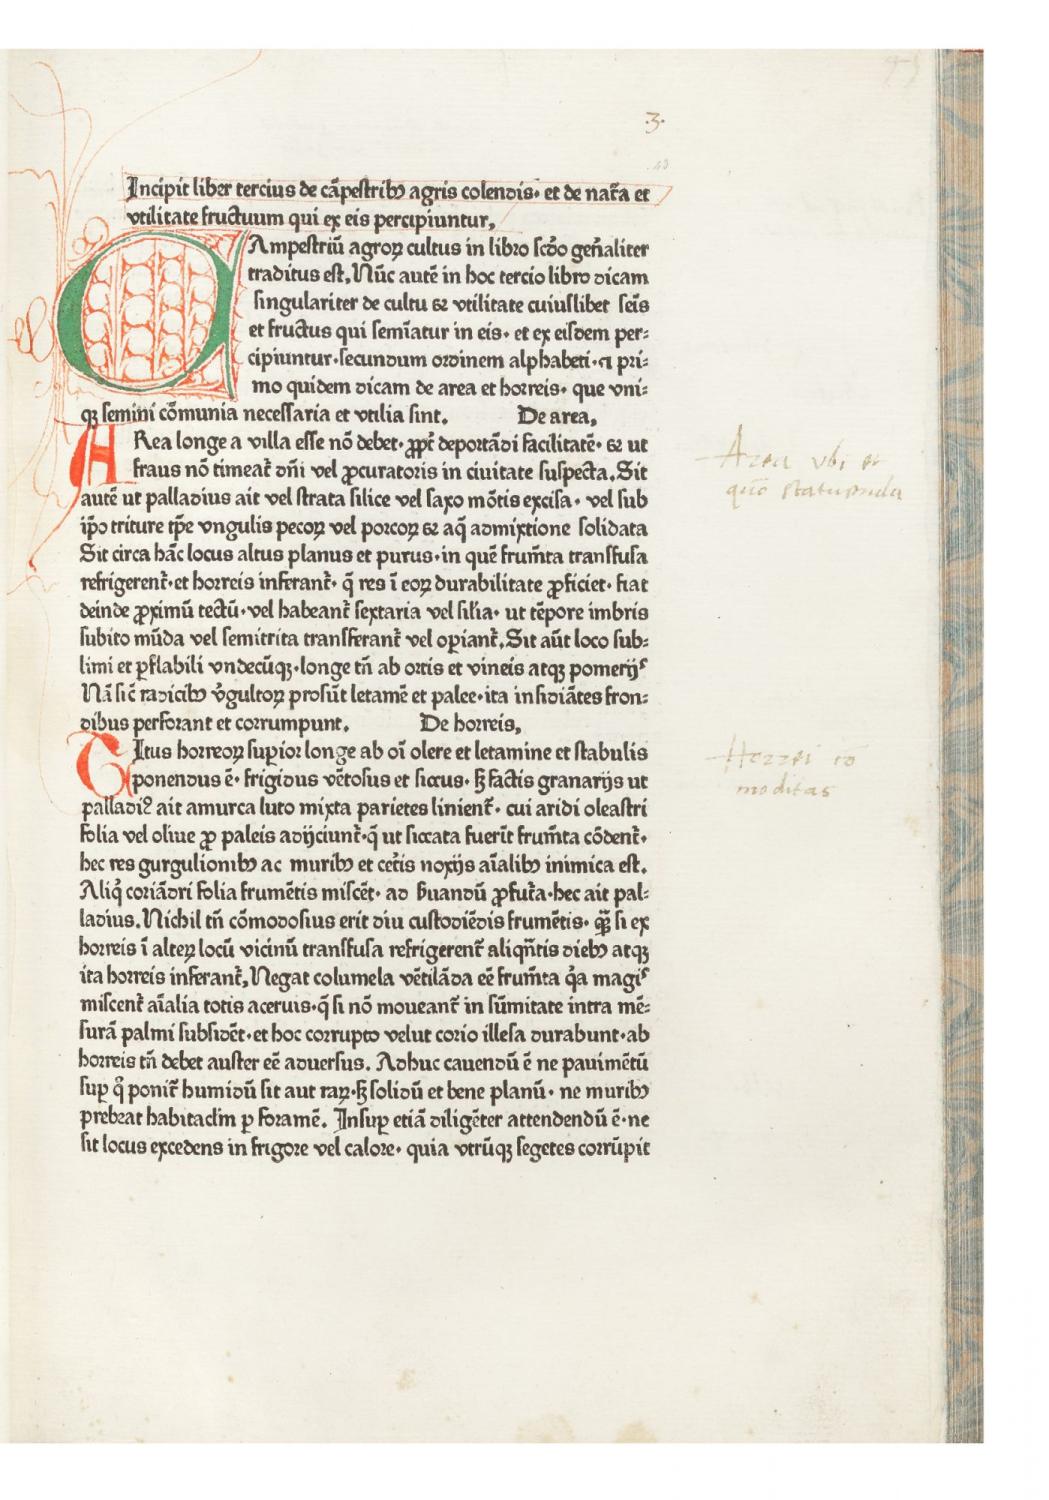 .3.
Incipit liber tercius de cãpestribꝫ agris colendis· et de nat̃a et
vtilitate fructuum qui ex eis percipiuntur,
CAmpestriũ agroꝝ cultus in libro scḋo geñaliter
traditus est, Nũc autẽ in hoc tercio libro dicam
singulariter de cultu ⁊ vtilitate cuiuslibet seĩs
et fructus qui semĩatur in eis· et ex eisdem per⸗
cipiuntur·secundum ordinem alphabeti·et pri⸗
mo quidem dicam de area et horreis· que vni⸗
qꝫ semini cõmunia necessaria et vtilia sint. De area,
ARea longe a villa esse nõ debet· ꝓpt̃ deportãdi facilitatẽ· ⁊ ut
fraus nõ timeat̃ dñi vel ꝓcuratoris in ciuitate suspecta. Sit
autẽ ut palladius ait vel strata silice vel saxo mõtis excisa· vel sub
ip̃o triture tp̃e vngulis pecoꝝ vel porcoꝝ ⁊ aq̃ admixtione solidata
Sit circa hãc locus altus planus et purus·in quẽ frum̃ta transfusa
refrigerent̃·et horreis inferant̃· q̃ res ĩ eoꝝ durabilitate ꝓficiet· fiat
deinde ꝓximũ tectũ·vel habeant̃ sextaria vel silia· ut tẽpore imbris
subito mũda vel semitrita transferant̃ vel opiant̃. Sit aũt loco sub⸗
limi et ꝑflabili vndecũqꝫ·longe tñ ab ortis et vineis atqꝫ pomerijˢ
Nã sic̃ radicibꝫ v̓gultoꝝ prosũt letamẽ et palee·ita insidiãtes fron⸗
dibus perforant et corrumpunt. De horreis,
SItus horreoꝝ suꝑior longe ab oĩ olere et letamine et stabulis
ponendus ẽ· frigidus vẽtosus et siccus· sꝫ factis granarijs ut
palladiꝰ ait amurca luto mixta parietes linient̃· cui aridi oleastri
folia vel oliue ꝓ paleis adijciunt̃·q̃ ut siccata fuerĩt frum̃ta cõdent̃·
hec res gurgulionibꝫ ac muribꝫ et cet̃is noxijs aĩalibꝫ inimica est.
Aliq̃ coriãdri folia frumẽtis miscẽt· ad ẜuandũ ꝓfut̃a·hec ait pal⸗
ladius. Nichil tñ cõmodosius erit diu custodiẽdis frumẽtis· q̃ꝫ si ex
horreis ĩ alteꝝ locũ vicinũ transfusa refrigerent̃ aliqñtis diebꝫ atqꝫ
ita horreis inferant̃, Negat columela vẽtilãda eẽ frum̃ta q̓a magiˢ
miscent̃ aĩalia totis aceruis·q̃ si nõ moueant̃ in sũmitate intra mẽ⸗
surã palmi subsidẽt·et hoc corrupto velut corio illesa durabunt·ab
horreis tñ debet auster eẽ aduersus. Adhuc cauendũ ẽ ne pauimẽtũ
suꝑ q̊ ponit̃ humidũ sit aut raꝝ·sꝫ solidũ et bene planũ· ne muribꝫ
prebeat habitacl̃m ꝑ foramẽ. Insuꝑ etiã diligẽter attendendũ ẽ·ne
sit locus excedens in frigore vel calore· quia vtrũqꝫ segetes corrũpit
Area vbi et
quõ statuenda
Horrei cõ
moditas